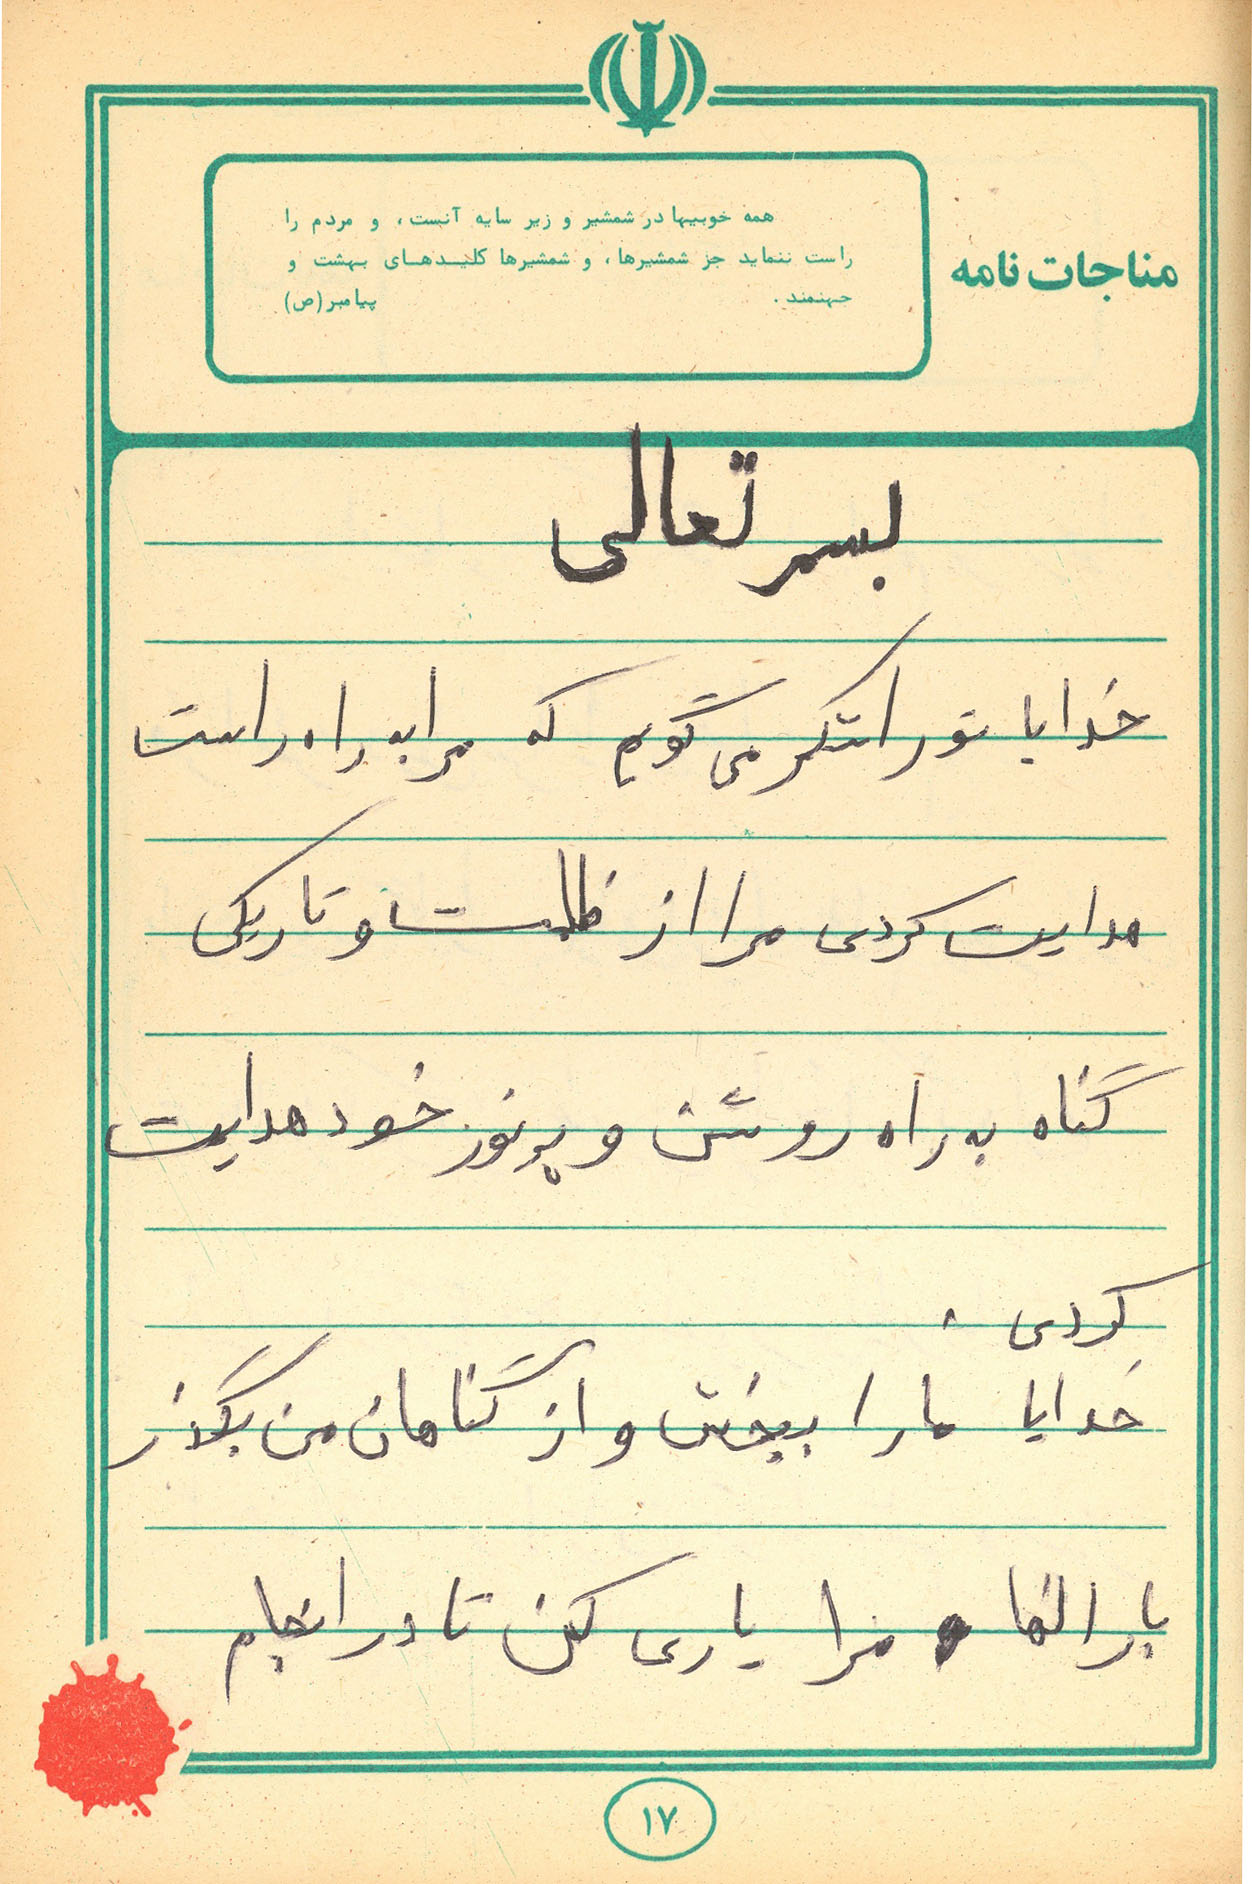 مناجات نامه
همه خوبیها در شمشیر و زیر سایه آنست، و مردم را
راست ننماید جز شمشیرها، و شمشیرها کلیدهای بهشت و
جهنمند. پیامبر(ص)
بسم تعالی
خدایا تو را شکر می گویم که مرا به راه راست
هدایت کردی مرا از ظلمت و تاریکی
گناه به راه روشن و پر نور خود هدایت
کردی.
خدایا مارا ببخش و از گناهان من بگذر
بار الها مرا یاری کن تا در انجام
۱۷